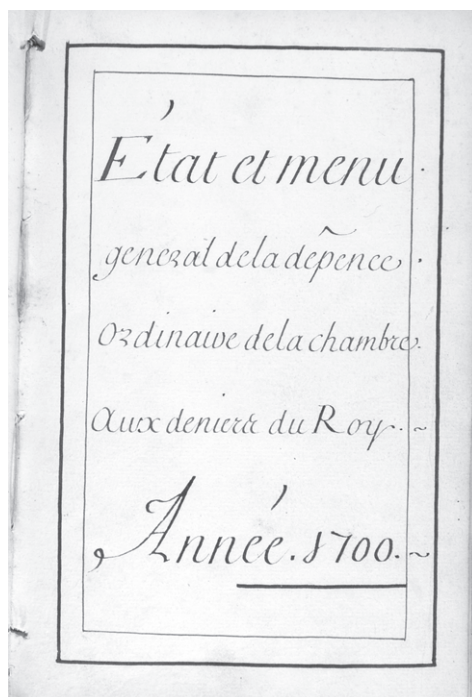 État et menu
general de la dep̃ence
Ordinaire de la chambre
Aux deniers du Roy
Année. 1700.